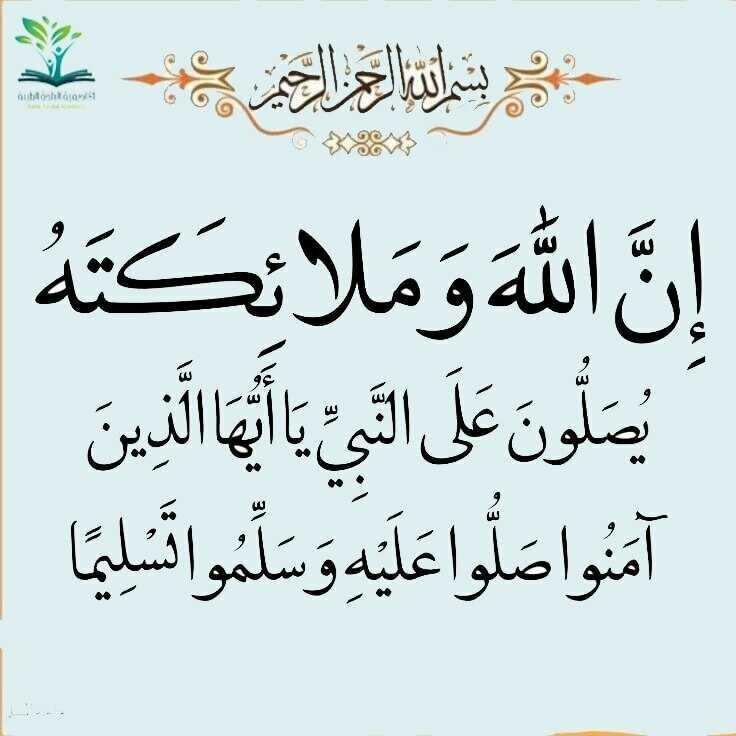 بسم الله الرحمن الرحيم
إِنَّ اللَّهَ وَمَلائِكَتَهُ
يُصَلُّونَ عَلَى النَّبِيِّ يَا أَيُّهَا الَّذِينَ
آمَنُوا صَلُّوا عَلَيْهِ وَسَلِّمُوا تَسْلِيمًا